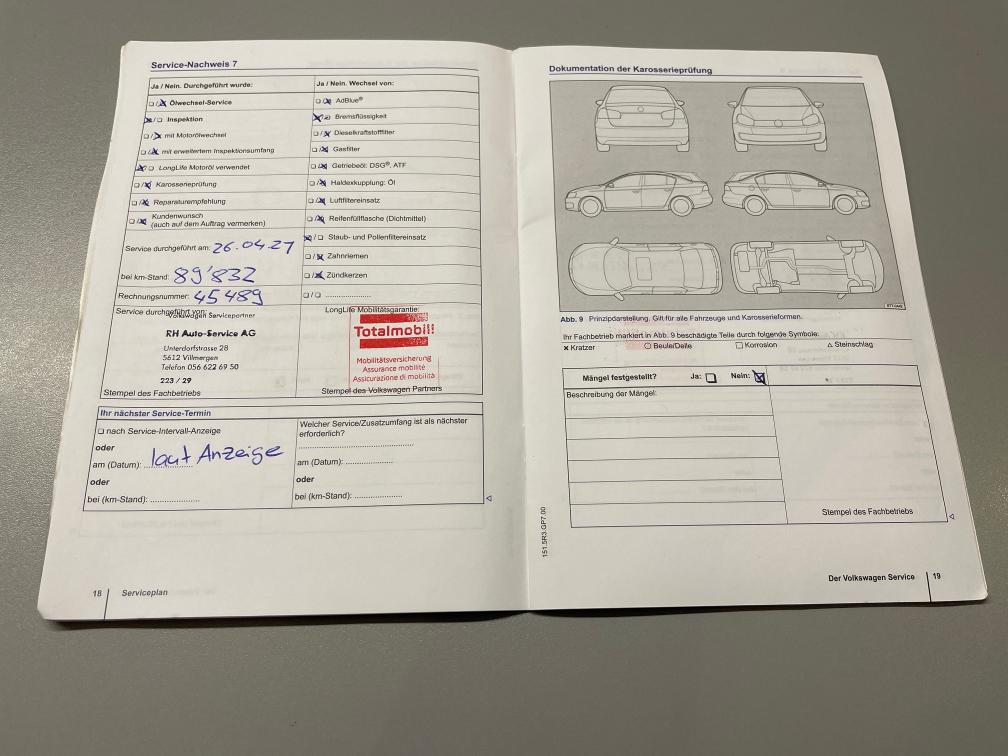 Service-Nachweis 7
Ja / Nein. Durchgeführt wurde:
Ölwechsel-Service
Inspektion
mit Motorölwechsel
mit erweitertem Inspektionsumfang
LongLife Motoröl verwendet
Karosserieprüfung
Reparaturempfehlung
Kundenwunsch
(auch auf dem Auftrag vermerken)
Service durchgeführt am: 26.04.21
bei km-Stand: 89'832
Rechnungsnummer: 45489
Service durchgeführt von:
Volkswagen Servicepartner
RH Auto-Service AG
Unterdorfstrasse 28
5612 Villmergen
Telefon 056 622 69 50
223 / 29
Stempel des Fachbetriebs
Ja / Nein. Wechsel von:
AdBlue®
Bremsflüssigkeit
Dieselkraftstofffilter
Gasfilter
Getriebeöl: DSG®, ATF
Haldexkupplung: Öl
Luftfiltereinsatz
Reifenfüllflasche (Dichtmittel)
Staub- und Pollenfiltereinsatz
Zahnriemen
Zündkerzen
LongLife Mobilitätsgarantie:
Totalmobil!
Mobilitätsversicherung
Assurance mobilité
Assicurazione di mobilità
Stempel des Volkswagen Partners
Ihr nächster Service-Termin
nach Service-Intervall-Anzeige
oder
am (Datum): laut Anzeige
oder
bei (km-Stand):
Welcher Service/Zusatzumfang ist als nächster
erforderlich?
am (Datum):
oder
bei (km-Stand):
18 Serviceplan
Dokumentation der Karosserieprüfung
Abb. 9 Prinzipdarstellung. Gilt für alle Fahrzeuge und Karosserieformen.
Ihr Fachbetrieb markiert in Abb. 9 beschädigte Teile durch folgende Symbole:
Kratzer Beule/Delle Korrosion Steinschlag
Mängel festgestellt? Ja: Nein:
Beschreibung der Mängel:
Stempel des Fachbetriebs
151.5R3.GP7.00
Der Volkswagen Service 19